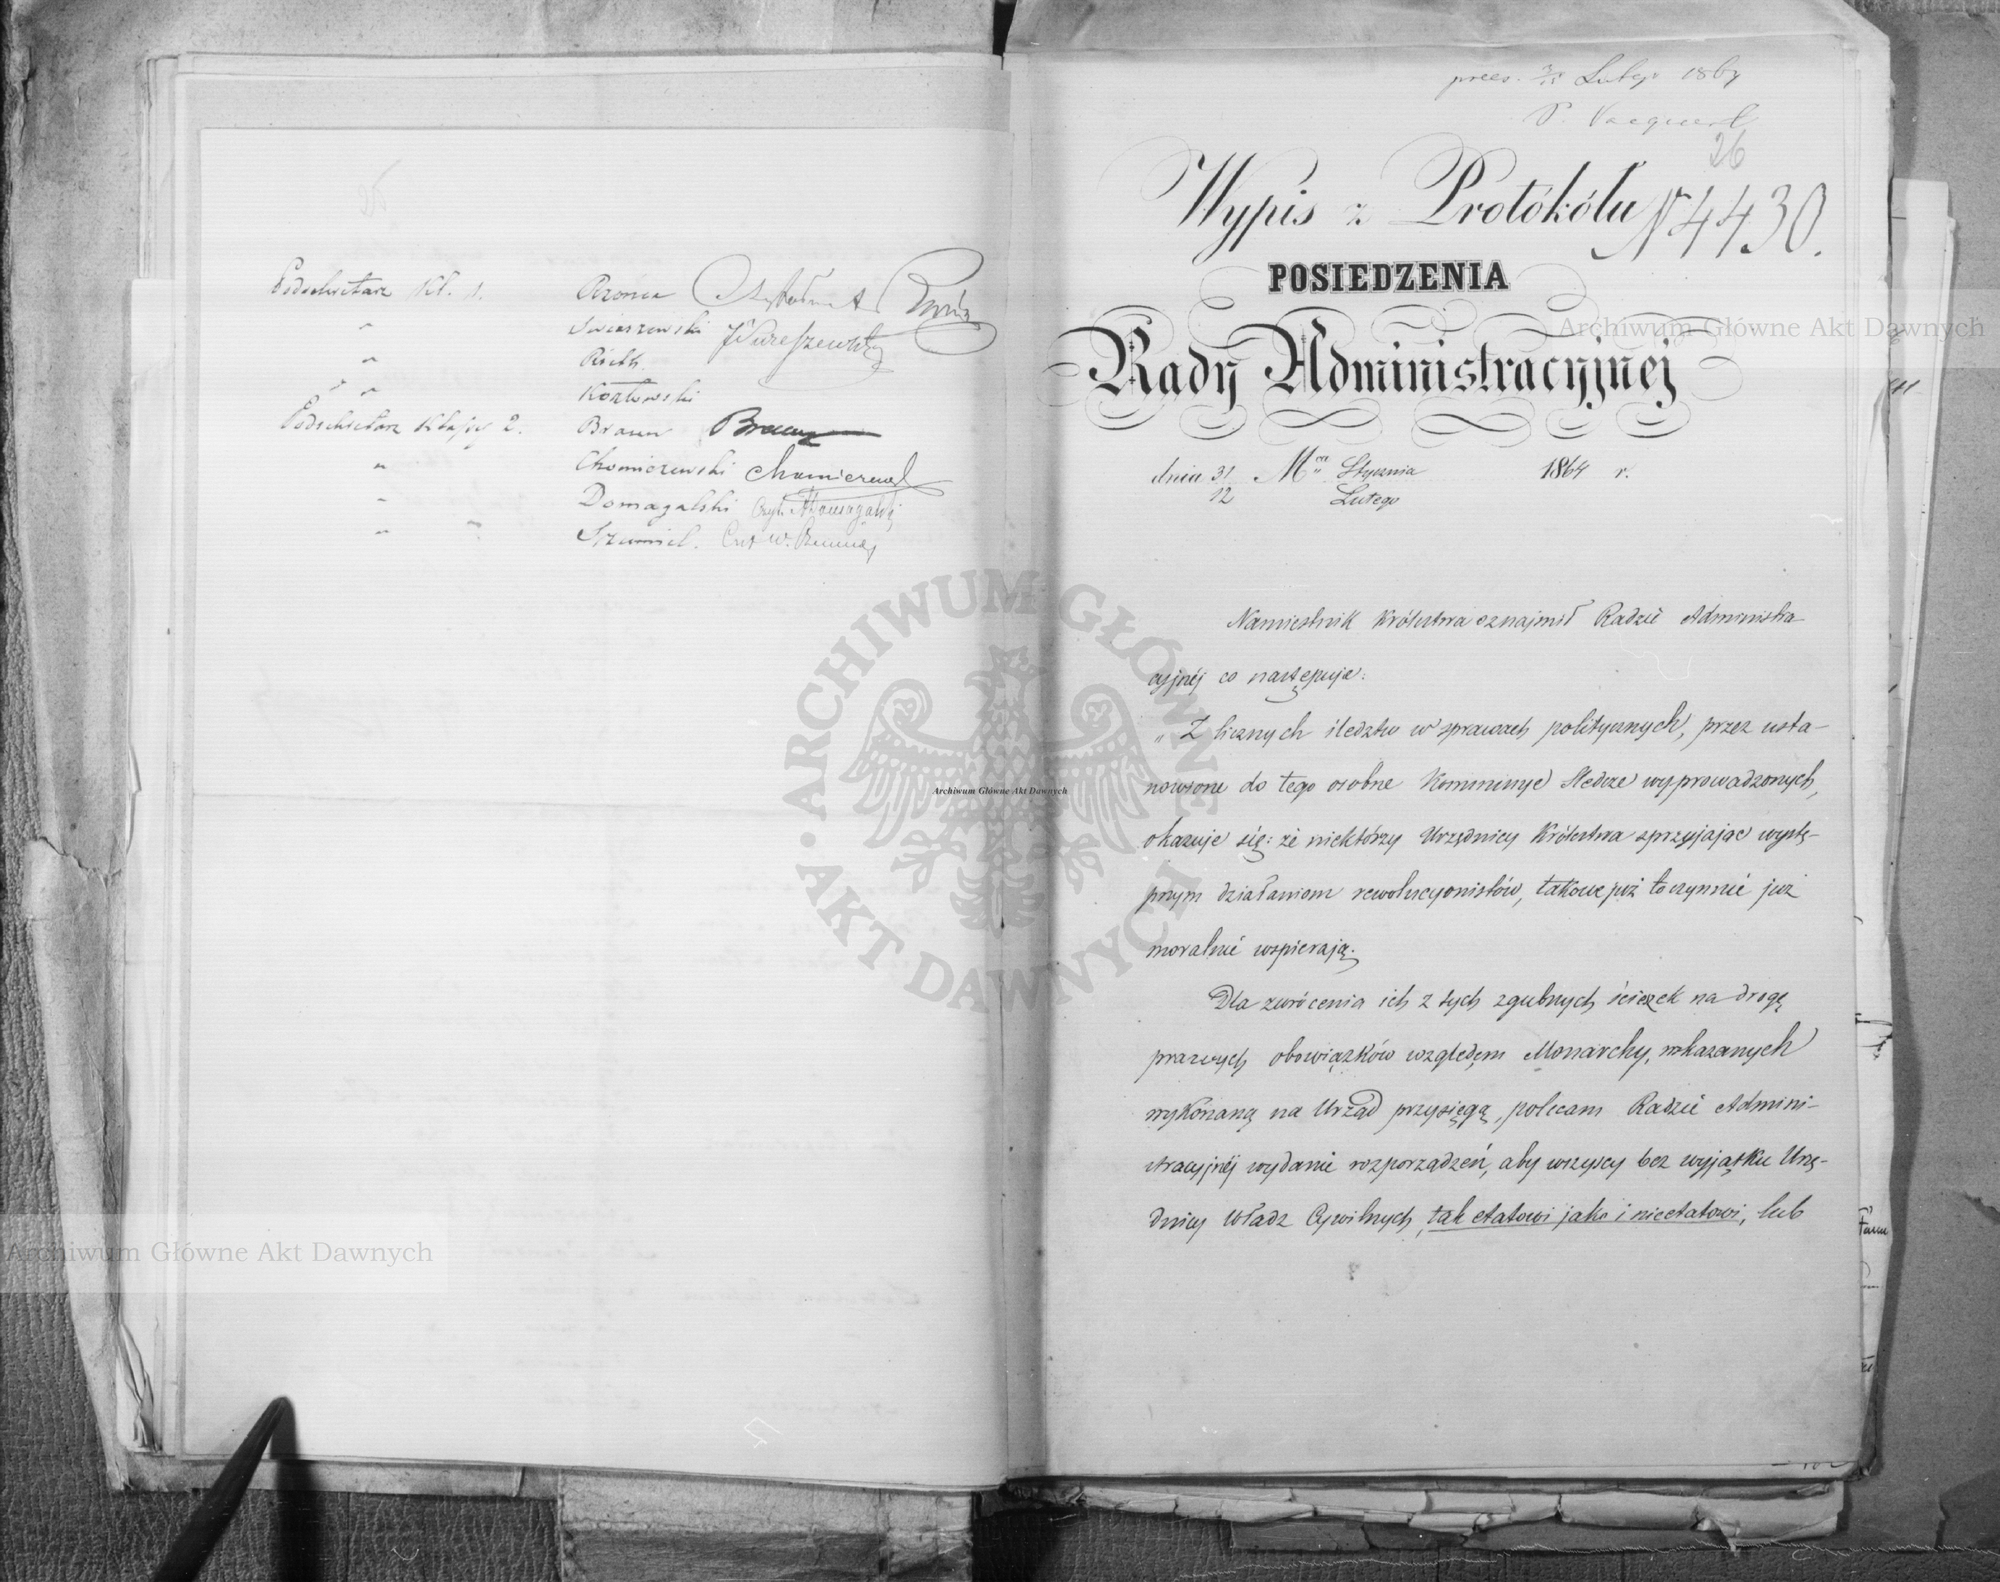 Podsekretarz Kl. 1. Czyta
" Świaszewski
" Rieth.
" Kozłowski
Podsekretarz Klassy 2. Braun Braun
" Chomiczewski Chomiczewski
" Domagalski Czyt. Domagalski
" Szumiel.
prez. Lutego 1864
26
Wypis z Protókółu N 4430.
POSIEDZENIA
Rady Administracyjnej
dnia 31 Mca Stycznia 1864 r.
12 Lutego
Namiestnik Królestwa oznajmił Radzie Administra
cyjnéj co następuje:
„Z licznych śledztw w sprawach politycznych, przez usta-
nowione do tego osobne Kommissye Śledcze wyprowadzonych,
okazuje się: że niektórzy Urzędnicy Królestwa sprzyjając wystę-
pnym działaniom rewolucyonistów, takowe już to czynnie już
moralnie wspierają.
Dla zwrócenia ich z tych zgubnych ścieżek na drogę
prawych obowiązków względem Monarchy, wskazanych
wykonaną na Urząd przysięgą, polecam Radzie Admini-
stracyjnéj wydanie rozporządzeń, aby wszyscy bez wyjątku Urzę-
dnicy Władz Cywilnych, tak etatowi jako i nieetatowi, lub
Archiwum Główne Akt Dawnych
Archiwum Główne Akt Dawnych
Archiwum Główne Akt Dawnych
ARCHIWUM GŁÓWNE AKT DAWNYCH